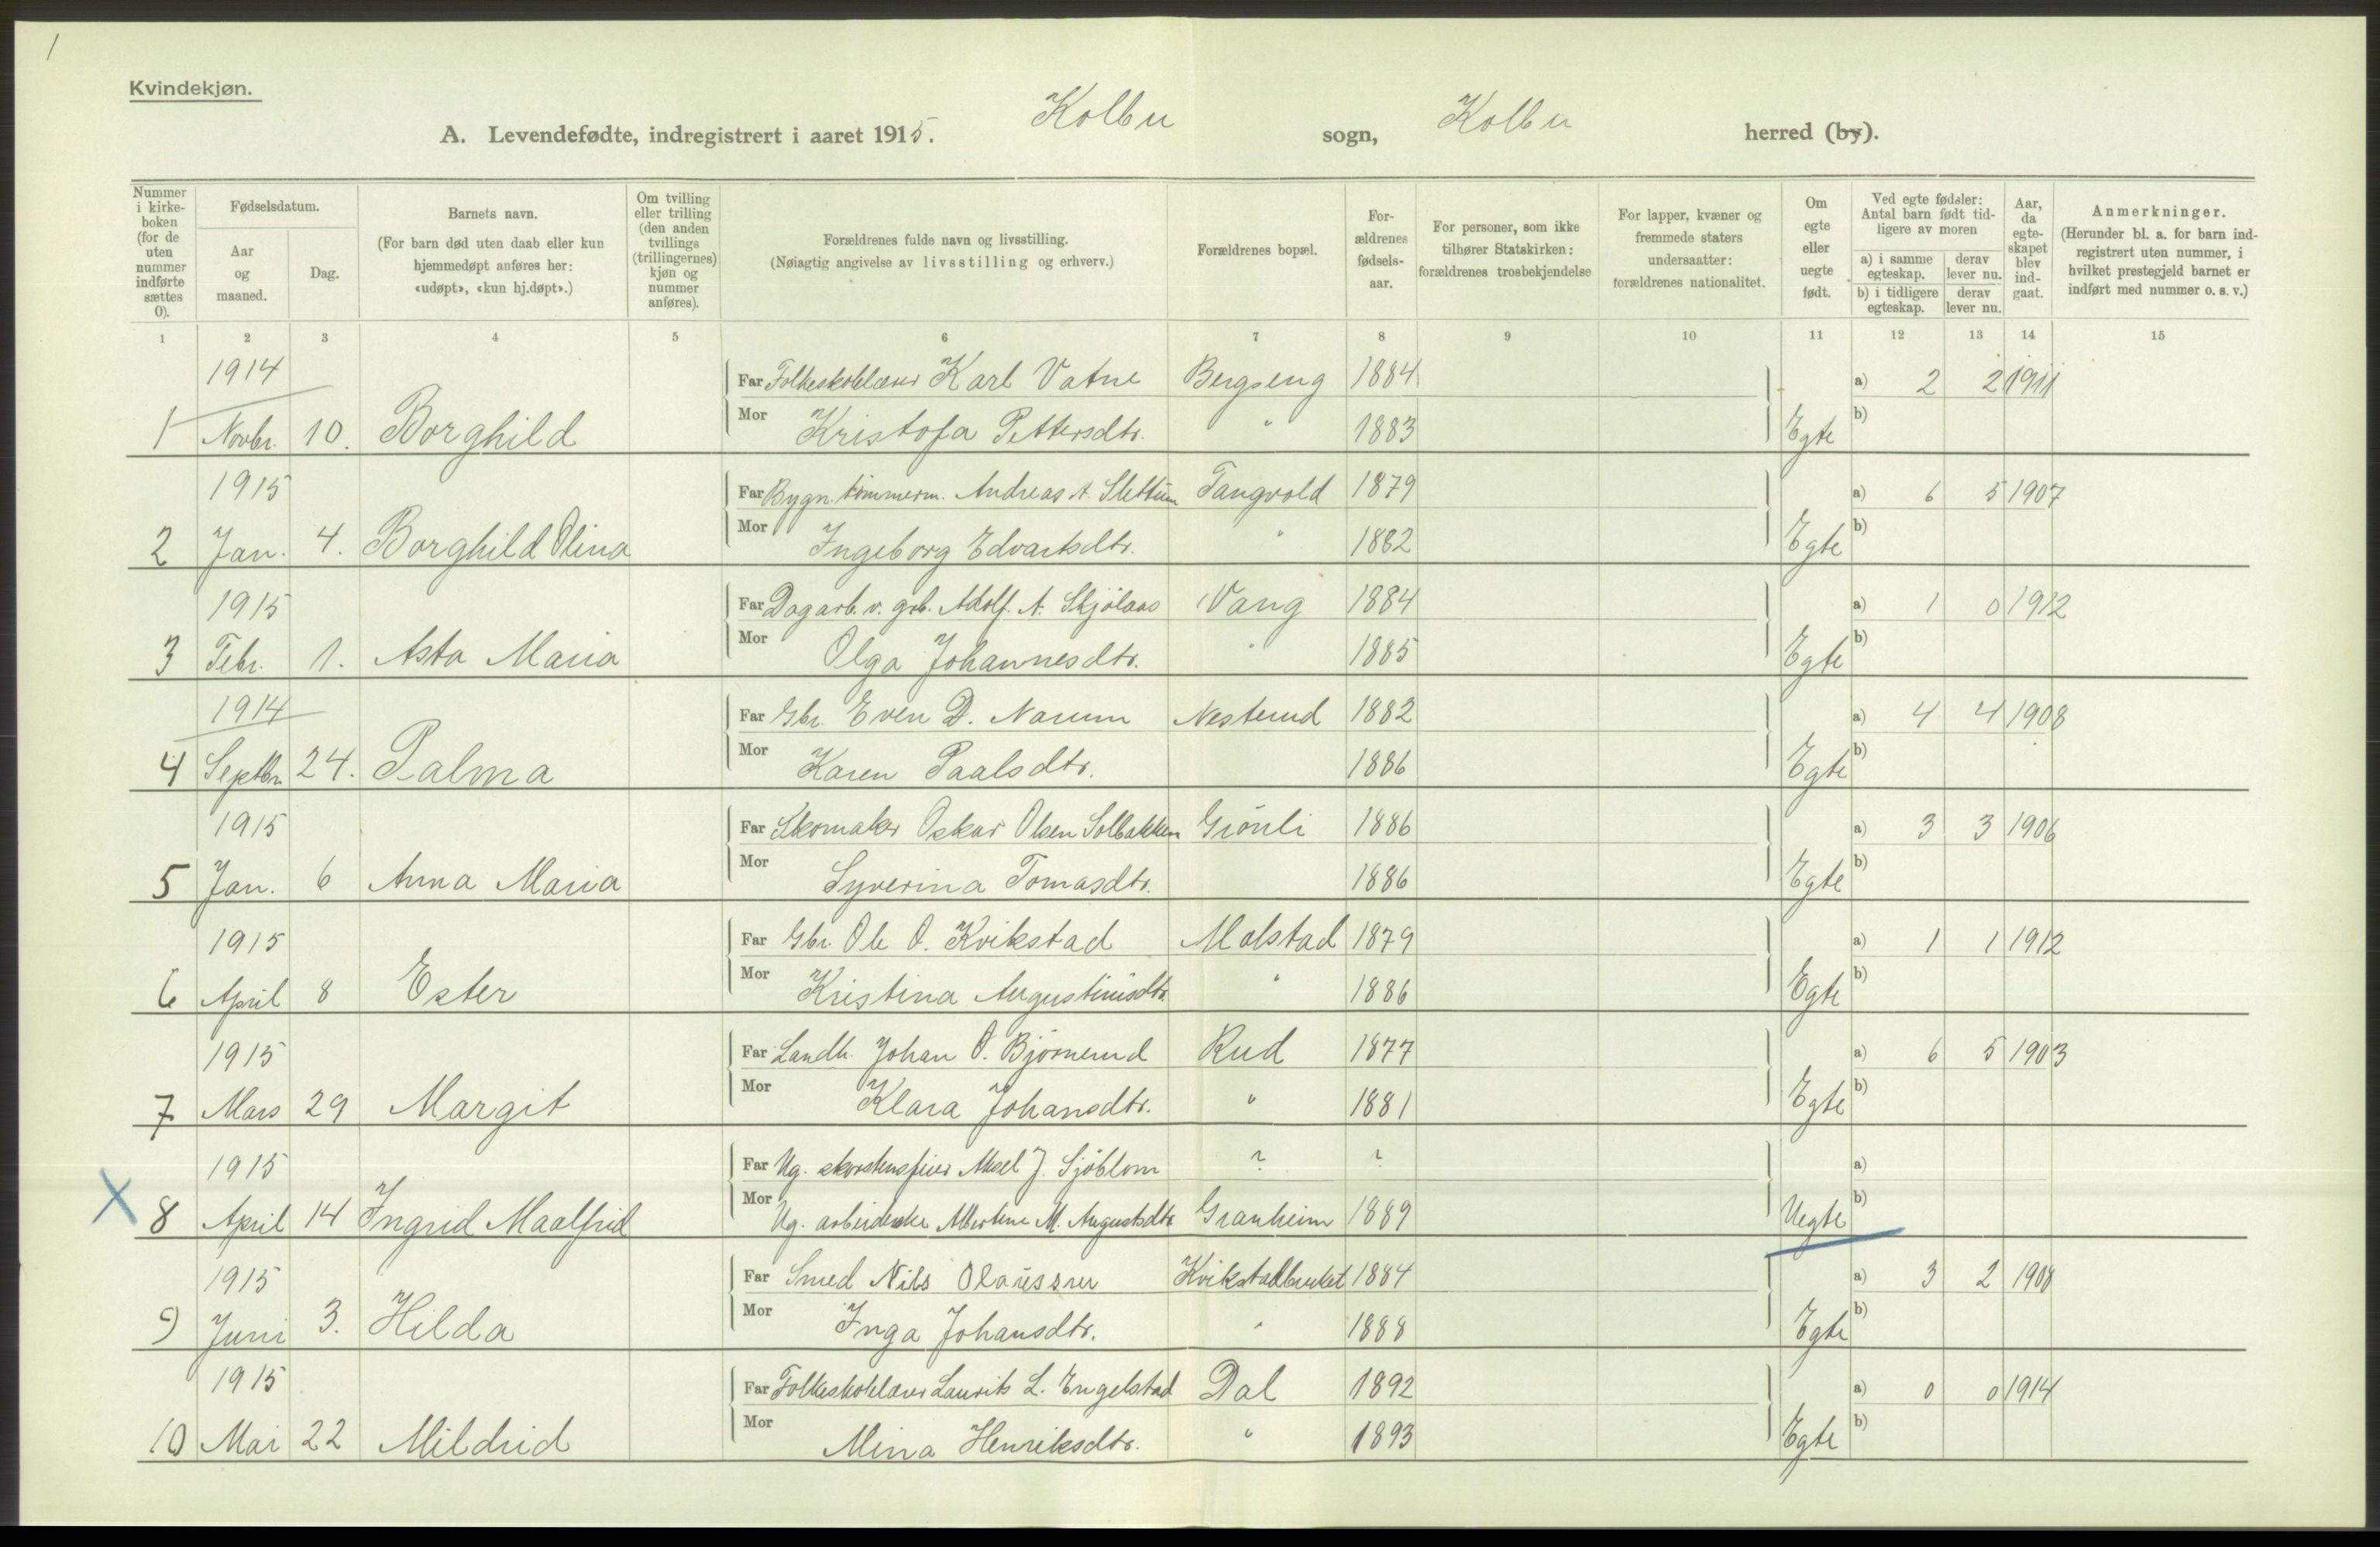 1
Kvindekjøn.
A. Levendefødte, indregistrert i aaret 1915. Kolbu sogn, Kolbu herred (by).
Nummer i kirke-boken (for de uten nummer indførte sættes 0).
Fødselsdatum.
Aar og maaned.
Dag.
Barnets navn.
(For barn død uten daab eller kun hjemmedøpt anføres her: «udøpt», «kun hj.døpt».)
Om tvilling eller trilling (den anden tvillings (trillingernes) kjøn og nummer anføres).
Forældrenes fulde navn og livsstilling.
(Nøiagtig angivelse av livsstilling og erhverv.)
Forældrenes bopæl.
For-ældrenes fødsels-aar.
For personer, som ikke tilhører Statskirken: forældrenes trosbekjendelse
For lapper, kvæner og fremmede staters undersaatter: forældrenes nationalitet.
Om egte eller uegte født.
Ved egte fødsler: Antal barn født tid-ligere av moren
a) i samme egteskap. derav lever nu.
b) i tidligere egteskap. derav lever nu.
Aar, da egte-skapet blev ind-gaat.
Anmerkninger.
(Herunder bl. a. for barn ind-registrert uten nummer, i hvilket prestegjeld barnet er indført med nummer o. s. v.)
1 2 3 4 5 6 7 8 9 10 11 12 13 14 15
1914 Far Folkeskolelærer Karl Vatne Bergseng 1884 a) 2 2 1911
1 Novbr. 10. Borghild Mor Kristofa Pettersdtr. " 1883 Egte b)
1915 Far Bygn. tømmerm. Andreas A. Slettum Tangvold 1879 a) 6 5 1907
2 Jan. 4. Borghild Olina Mor Ingeborg Edvartsdtr. " 1882 Egte b)
1915 Far Dagarb. v. grb. Adolf. A. Skjølaas Vang 1884 a) 1 0 1912
3 Febr. 1. Asta Maria Mor Olga Johannesdtr. " 1885 Egte b)
1914 Far Gbr. Even D. Narum Nesterud 1882 a) 4 4 1908
4 Septbr. 24. Palma Mor Karen Paalsdtr. 1886 Egte b)
1915 Far Skomaker Oskar Olsen Solbakken Grönli 1886 a) 3 3 1906
5 Jan. 6 Anna Maria Mor Syverina Tomasdtr. 1886 Egte b)
1915 Far Gbr. Ole O. Kvikstad Molstad 1879 a) 1 1 1912
6 April 8 Ester Mor Kristina Augustinusdtr. " 1886 Egte b)
1915 Far Landh. Johan O. Björnerud Rud 1877 a) 6 5 1903
7 Mars 29 Margit Mor Klara Johansdtr. " 1881 Egte b)
1915 Far Ug. skorstensfeier Aksel J. Sjöblom ? ? a)
X 8 April 14 Ingrid Maalfrid Mor Ug. arbeiderske Albertine M. Augustsdtr. Granheim 1889 Uegte b)
1915 Far Smed Nils Olaussen Kvikstadbruket 1884 a) 3 2 1908
9 Juni 3. Hilda Mor Inga Johansdtr. " 1888 Egte b)
1915 Far Folkeskolelærer Laurits L. Engelstad Dal 1892 a) 0 0 1914
10 Mai 22 Mildrid Mor Mina Henriksdtr. " 1893 Egte b)